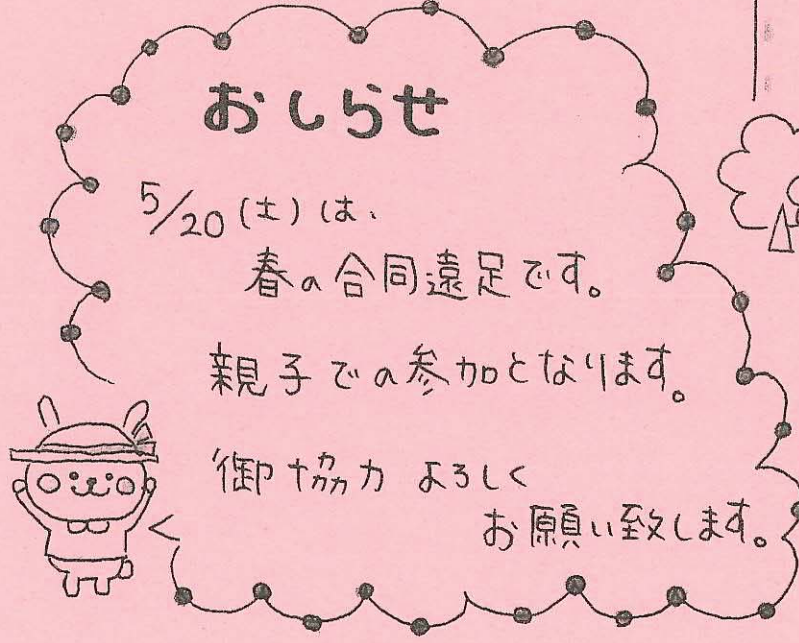 おしらせ
5/20(土)は、
春の合同遠足です。
親子での参加となります。
御協力 よろしく
お願い致します。